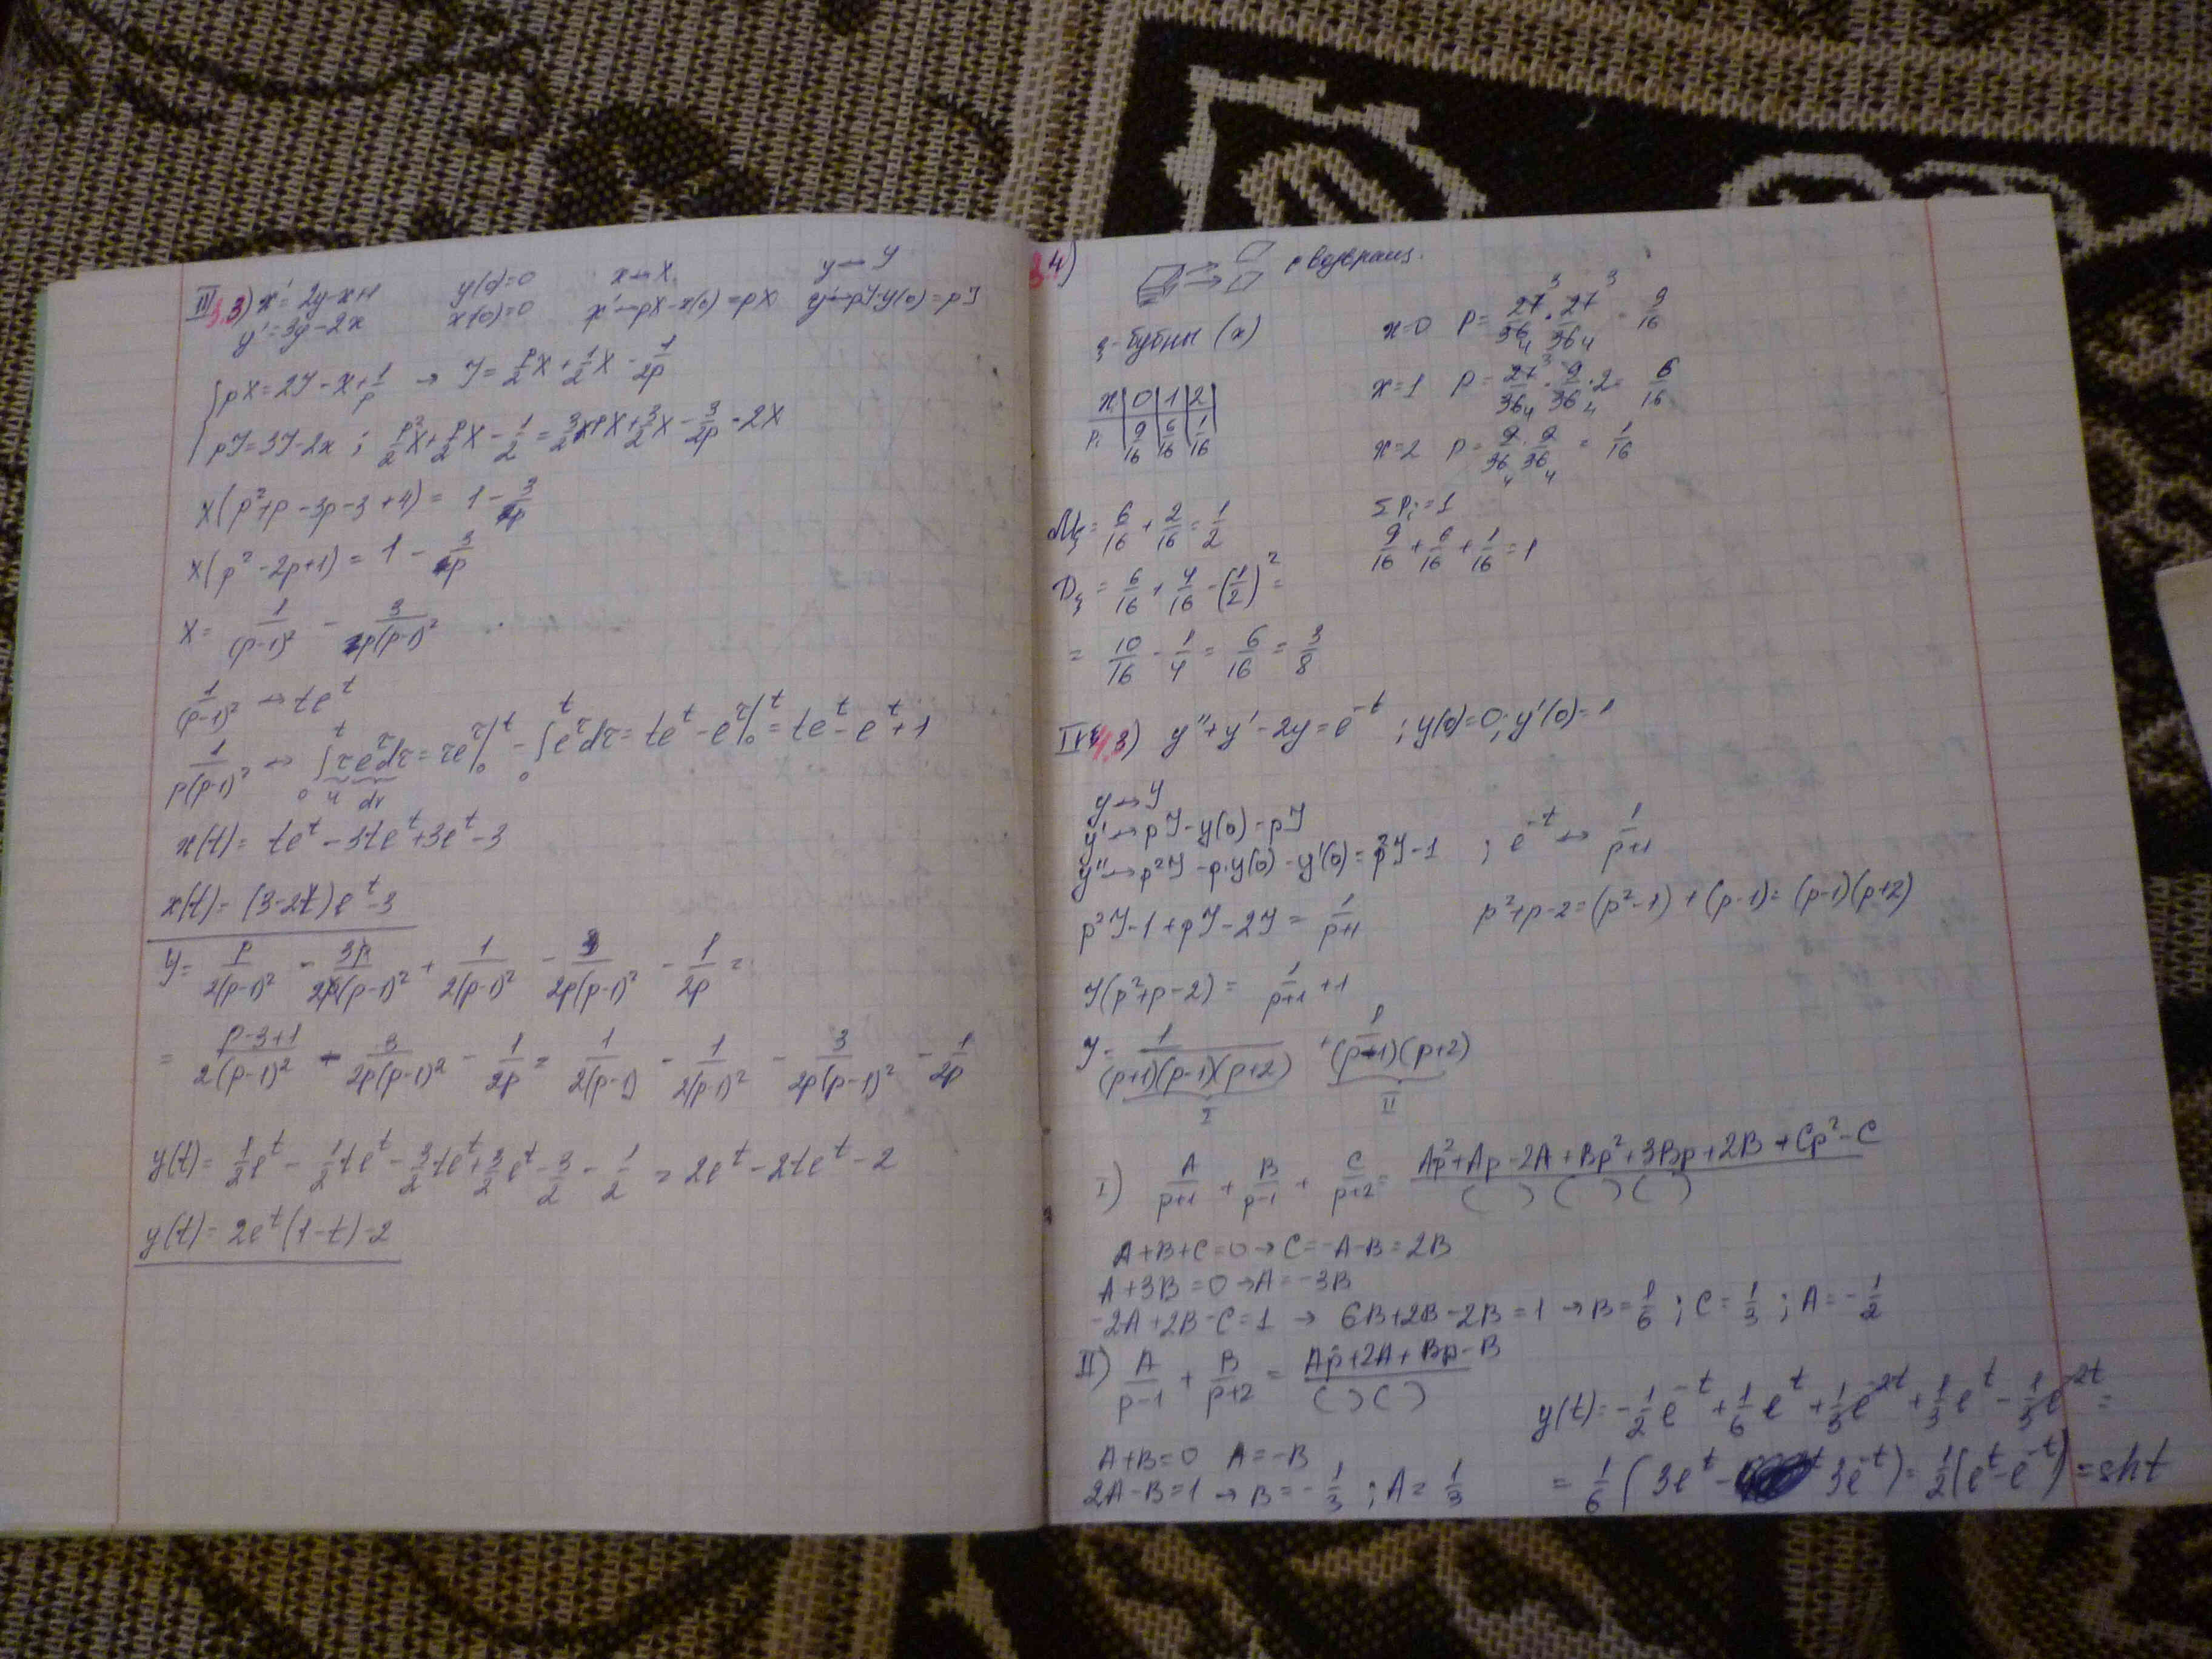 III 3.3) x' = 2y-x+1    y(0)=0    x → X    y → Y
y' = 3y-2x    x(0)=0    x' → pX-x(0) = pX    y' → pY-y(0) = pY
{ pX = 2Y - x + 1/p → Y = p/2 X + 1/2 X - 1/2p
pY = 3Y-2x ; p²/2 X + p/2 X - 1/2 = 3/2 pX + 3/2 X - 3/2p - 2X
X(p²+p-3p-3+4) = 1 - 3/p
X(p²-2p+1) = 1 - 3/p
X = 1/(p-1)² - 3/p(p-1)²
1/(p-1)² → te^t
1/p(p-1)² → ∫₀^t τe^τdτ = τe^τ|₀^t - ∫₀^t e^τdτ = te^t - e^τ|₀^t = te^t - e^t + 1
u dv
x(t) = te^t - 3te^t + 3e^t - 3
x(t) = (3-2t)e^t - 3
Y = p/2(p-1)² - 3p/2p(p-1)² + 1/2(p-1)² - 3/2p(p-1)² - 1/2p =
= p-3+1/2(p-1)² - 3/2p(p-1)² - 1/2p = 1/2(p-1) - 1/2(p-1)² - 3/2p(p-1)² - 1/2p
y(t) = 1/2 e^t - 1/2 te^t - 3/2 te^t + 3/2 e^t - 3/2 - 1/2 = 2e^t - 2te^t - 2
y(t) = 2e^t(1-t)-2
3.4) с возвращ.
ξ - бубны (x)    x=0    P = 27/36 · 27/36 = 9/16
3 3 4 4
x | 0 | 1 | 2    x=1    P = 27/36 · 9/36 · 2 = 6/16
3 4 4
Pi | 9/16 | 6/16 | 1/16    x=2    P = 9/36 · 9/36 = 1/16
4 4
Mξ = 6/16 + 2/16 = 1/2    ΣPi = 1
9/16 + 6/16 + 1/16 = 1
Dξ = 6/16 + 4/16 - (1/2)² =
= 10/16 - 1/4 = 6/16 = 3/8
4.3) y''+y'-2y = e^-t ; y(0)=0; y'(0)=1
y → Y
y' → pY-y(0) = pY
y'' → p²Y - p·y(0) - y'(0) = p²Y-1 ; e^-t → 1/p+1
p²Y-1+pY-2Y = 1/p+1    p²+p-2 = (p²-1)+(p-1) = (p-1)(p+2)
Y(p²+p-2) = 1/p+1 + 1
Y = 1/(p+1)(p-1)(p+2) + 1/(p-1)(p+2)
I II
I) A/p+1 + B/p-1 + C/p+2 = Ap²+Ap-2A+Bp²+3Bp+2B+Cp²-C/( )( )( )
A+B+C=0 → C=-A-B=2B
A+3B=0 → A=-3B
-2A+2B-C=1 → 6B+2B-2B=1 → B=1/6 ; C=1/3 ; A=-1/2
II) A/p-1 + B/p+2 = Ap+2A+Bp-B/( )( )
A+B=0 A=-B
2A-B=1 → B=-1/3 ; A=1/3
y(t) = -1/2 e^-t + 1/6 e^t + 1/3 e^-2t + 1/3 e^t - 1/3 e^-2t =
= 1/6 (3e^t - 3e^-t) = 1/2(e^t - e^-t) = sht